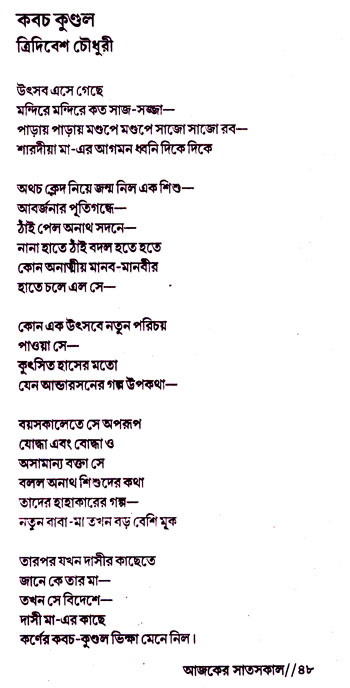 কবচ কুণ্ডল
ত্রিদিবেশ চৌধুরী
উৎসব এসে গেছে
মন্দিরে মন্দিরে কত সাজ-সজ্জা—
পাড়ায় পাড়ায় মণ্ডপে মণ্ডপে সাজো সাজো রব—
শারদীয়া মা-এর আগমন ধ্বনি দিকে দিকে
অথচ ক্লেদ নিয়ে জন্ম নিল এক শিশু—
আবর্জনার পূতিগন্ধে—
ঠাঁই পেল অনাথ সদনে—
নানা হাতে ঠাঁই বদল হতে হতে
কোন অনাত্মীয় মানব-মানবীর
হাতে চলে এল সে—
কোন এক উৎসবে নতুন পরিচয়
পাওয়া সে—
কুৎসিত হাসের মতো
যেন আন্ডারসনের গল্প উপকথা—
বয়সকালেতে সে অপরূপ
যোদ্ধা এবং বোদ্ধা ও
অসামান্য বক্তা সে
বলল অনাথ শিশুদের কথা
তাদের হাহাকারের গল্প—
নতুন বাবা-মা তখন বড় বেশি মূক
তারপর যখন দাসীর কাছেতে
জানে কে তার মা—
তখন সে বিদেশে—
দাসী মা-এর কাছে
কর্ণের কবচ-কুণ্ডল ভিক্ষা মেনে নিল।
আজকের সাতসকাল//৪৮